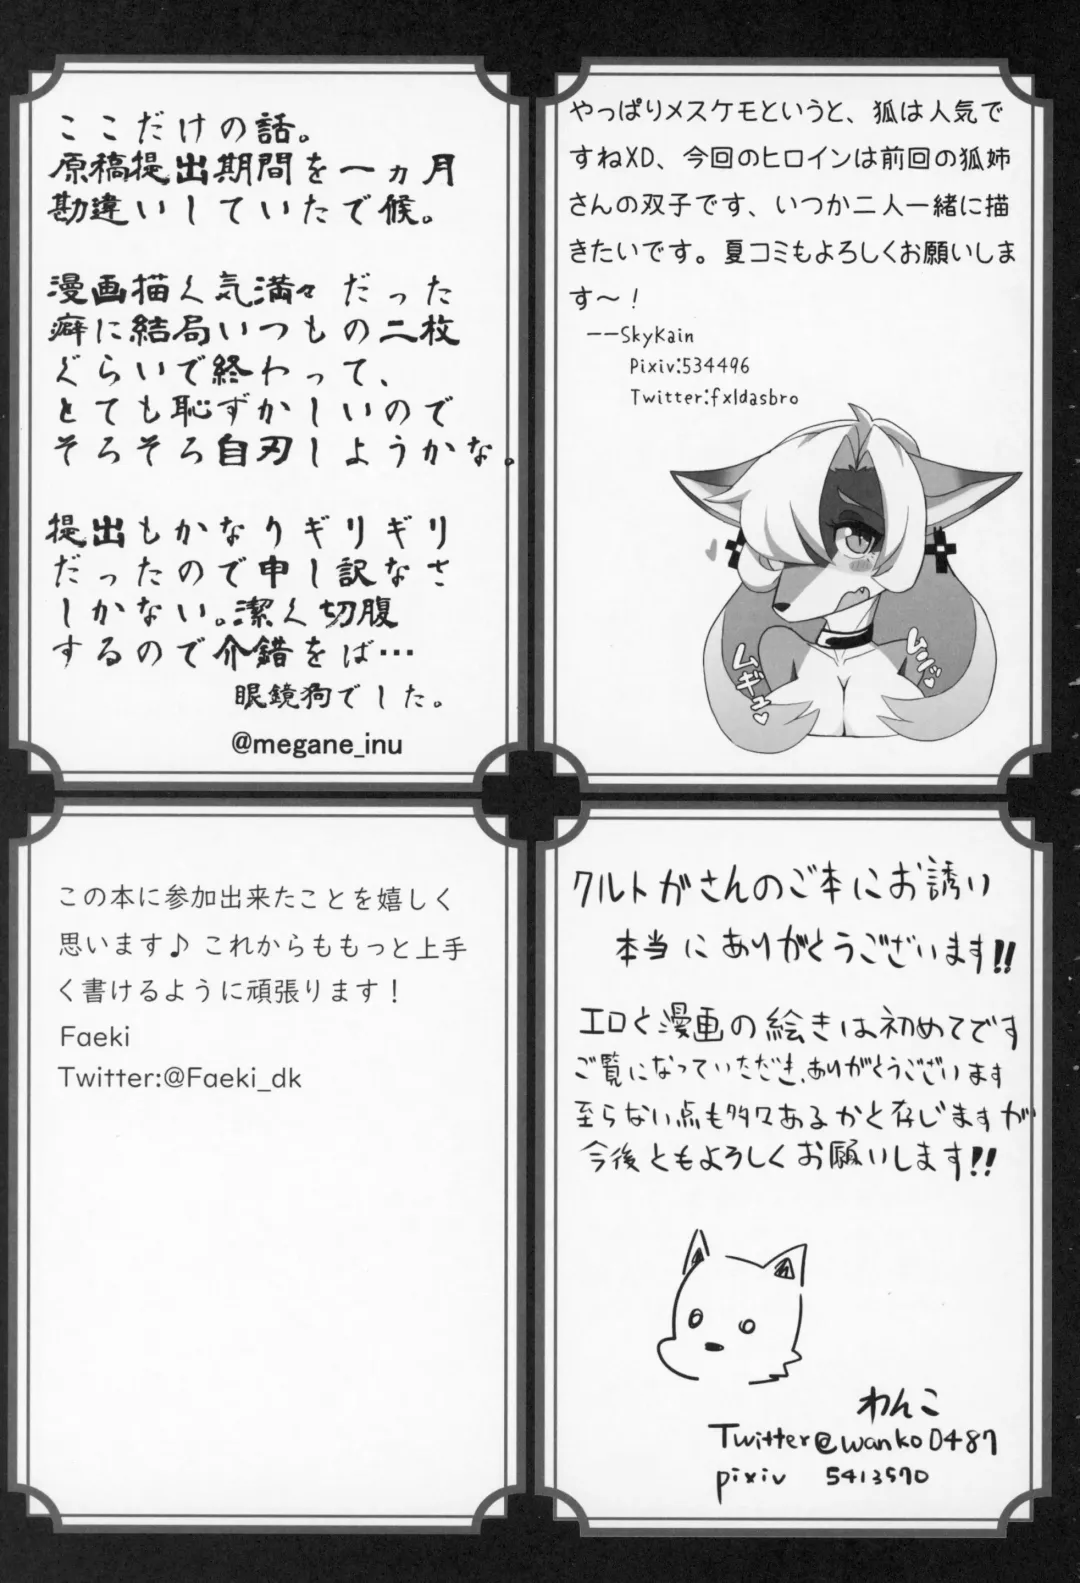 ここだけの話。
原稿提出期間を一ヵ月
勘違いしていたで候。
漫画描く気満々だった
癖に結局いつもの二枚
ぐらいで終わって、
とても恥ずかしいので
そろそろ自刃しようかな。
提出もかなりギリギリ
だったので申し訳なさ
しかない。潔く切腹
するので介錯をば…
眼鏡狗でした。
@megane_inu
やっぱりメスケモというと、狐は人気で
すねXD、今回のヒロインは前回の狐姉
さんの双子です、いつか二人一緒に描
きたいです。夏コミもよろしくお願いしま
す～！
--SkyKain
Pixiv:534496
Twitter:fxldasbro
ムギュ♡
ムニッ♡
この本に参加出来たことを嬉しく
思います♪これからももっと上手
く書けるように頑張ります！
Faeki
Twitter:@Faeki_dk
クルトガさんのご本にお誘い
本当にありがとうございます!!
エロと漫画の絵きは初めてです
ご覧になっていただき、ありがとうございます
至らない点も多々あるかと存じますが
今後ともよろしくお願いします!!
わんこ
Twitter@wanko0487
pixiv 5413570